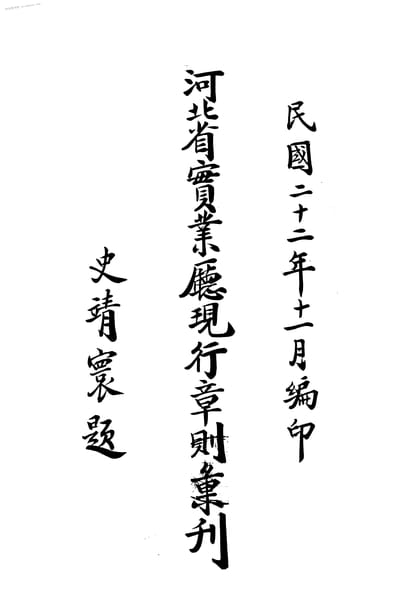 民國二十二年十一月編印
河北省實業廳現行章則彙刊
史靖寰題